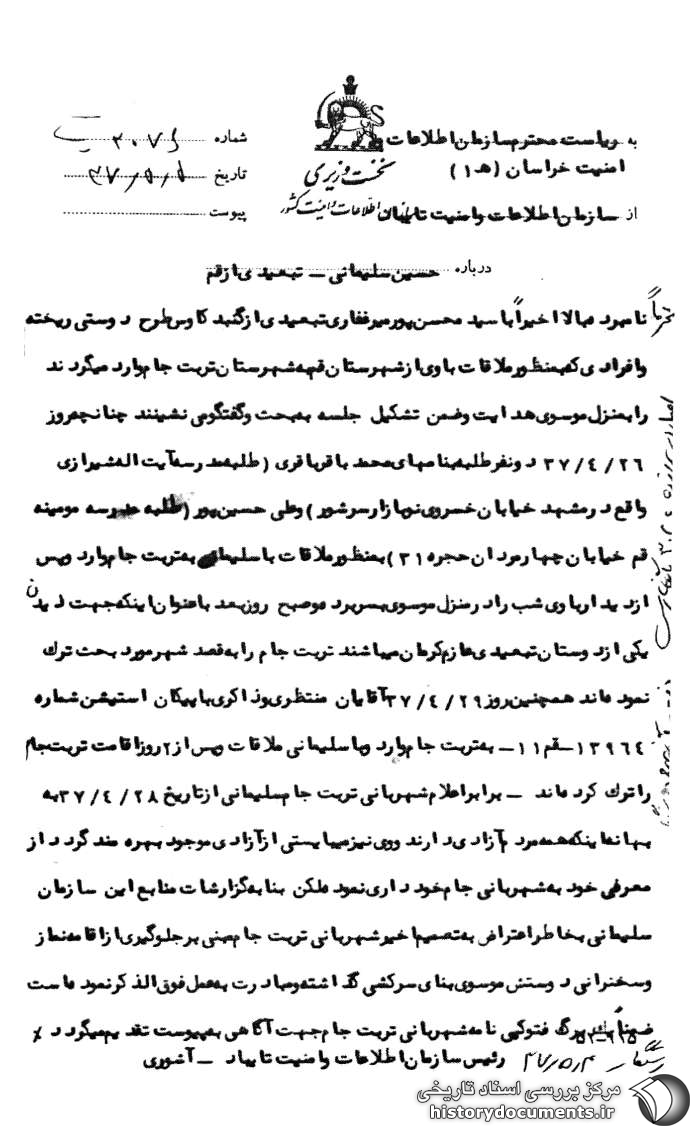 به ریاست محترم سازمان اطلاعات و
امنیت خراسان (هـ ۱)
از سازمان اطلاعات و امنیت تایباد
نخست وزیری
سازمان اطلاعات و امنیت کشور
شماره
تاریخ
پیوست
درباره حسین سلیمانی ــ تبعیدی از قم
نامبرده بالا اخیراً با سید محسن پورمیرغفاری تبعیدی از گنبد کاوس طرح دوستی ریخته
و افرادی که بمنظور ملاقات با وی از شهرستان قم به شهرستان تربت جام وارد میگردند
را بمنزل موسوی هدایت و ضمن تشکیل جلسه به بحث و گفتگو می نشینند چنانچه روز
۳۷/۴/۲۶ دو نفر طلبه بنامهای محمد باقر باقری (طلبه مدرسه آیت اله شیرازی
واقع در مشهد خیابان خسروی نو بازار سرشور) و علی حسین پور (طلبه مدرسه مومینه
قم خیابان چهارمردان حجره ۳۱) بمنظور ملاقات با سلیمانی به تربت جام وارد و پس
از دیدار با وی شب را در منزل موسوی بسر برده و صبح روز بعد با عنوان اینکه جهت دیدن
یکی از دوستان تبعیدی عازم کرمان میباشند تربت جام را به قصد شهر مورد بحث ترک
نموده اند همچنین روز ۳۷/۴/۲۹ آقایان منتظری و ذاکری با پیکان استیشن شماره
۱۳۹۶۴ ــ قم ۱۱ ــ به تربت جام وارد و با سلیمانی ملاقات و پس از ۲ روز اقامت تربت جام
را ترک کرده اند ــ برابر اعلام شهربانی تربت جام سلیمانی از تاریخ ۳۷/۴/۲۸ به
بهانه اینکه همه مردم آزادی دارند و وی نیز میبایستی از آزادی موجود بهره مند گردد از
معرفی خود به شهربانی جام خودداری نموده لکن بنا به گزارشات منابع این سازمان
سلیمانی بخاطر اعتراض به تصمیم اخیر شهربانی تربت جام مبنی بر جلوگیری از اقامه نماز
و سخنرانی دوستش موسوی بنای سرکشی گذاشته و مبادرت به عمل فوق الذکر نموده است
ضمناً یک برگ فتوکپی نامه شهربانی تربت جام جهت آگاهی به پیوست تقدیم میگردد ٪
رئیس سازمان اطلاعات و امنیت تایباد ــ آشوری
مرکز بررسی اسناد تاریخی
historydocuments.ir